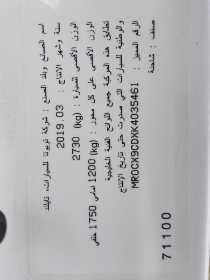 اسم الصانع وبلد الصنع : شركة تويوتا للسيارات، تايلاند
سنة وشهر الانتاج : 2019 . 03
الوزن الاقصى للسيارة : (kg) 2730
الوزن الاقصى على كل محور : (kg) 1200 امامي 1750 خلفي
تطابق هذه المركبة جميع اللوائح الفنية الخليجية
والوطنية للسيارات التي صدرت حتى تاريخ الانتاج
الرقم المميز : MR0CX9CDXK4035461
صنف : شاحنة
71100